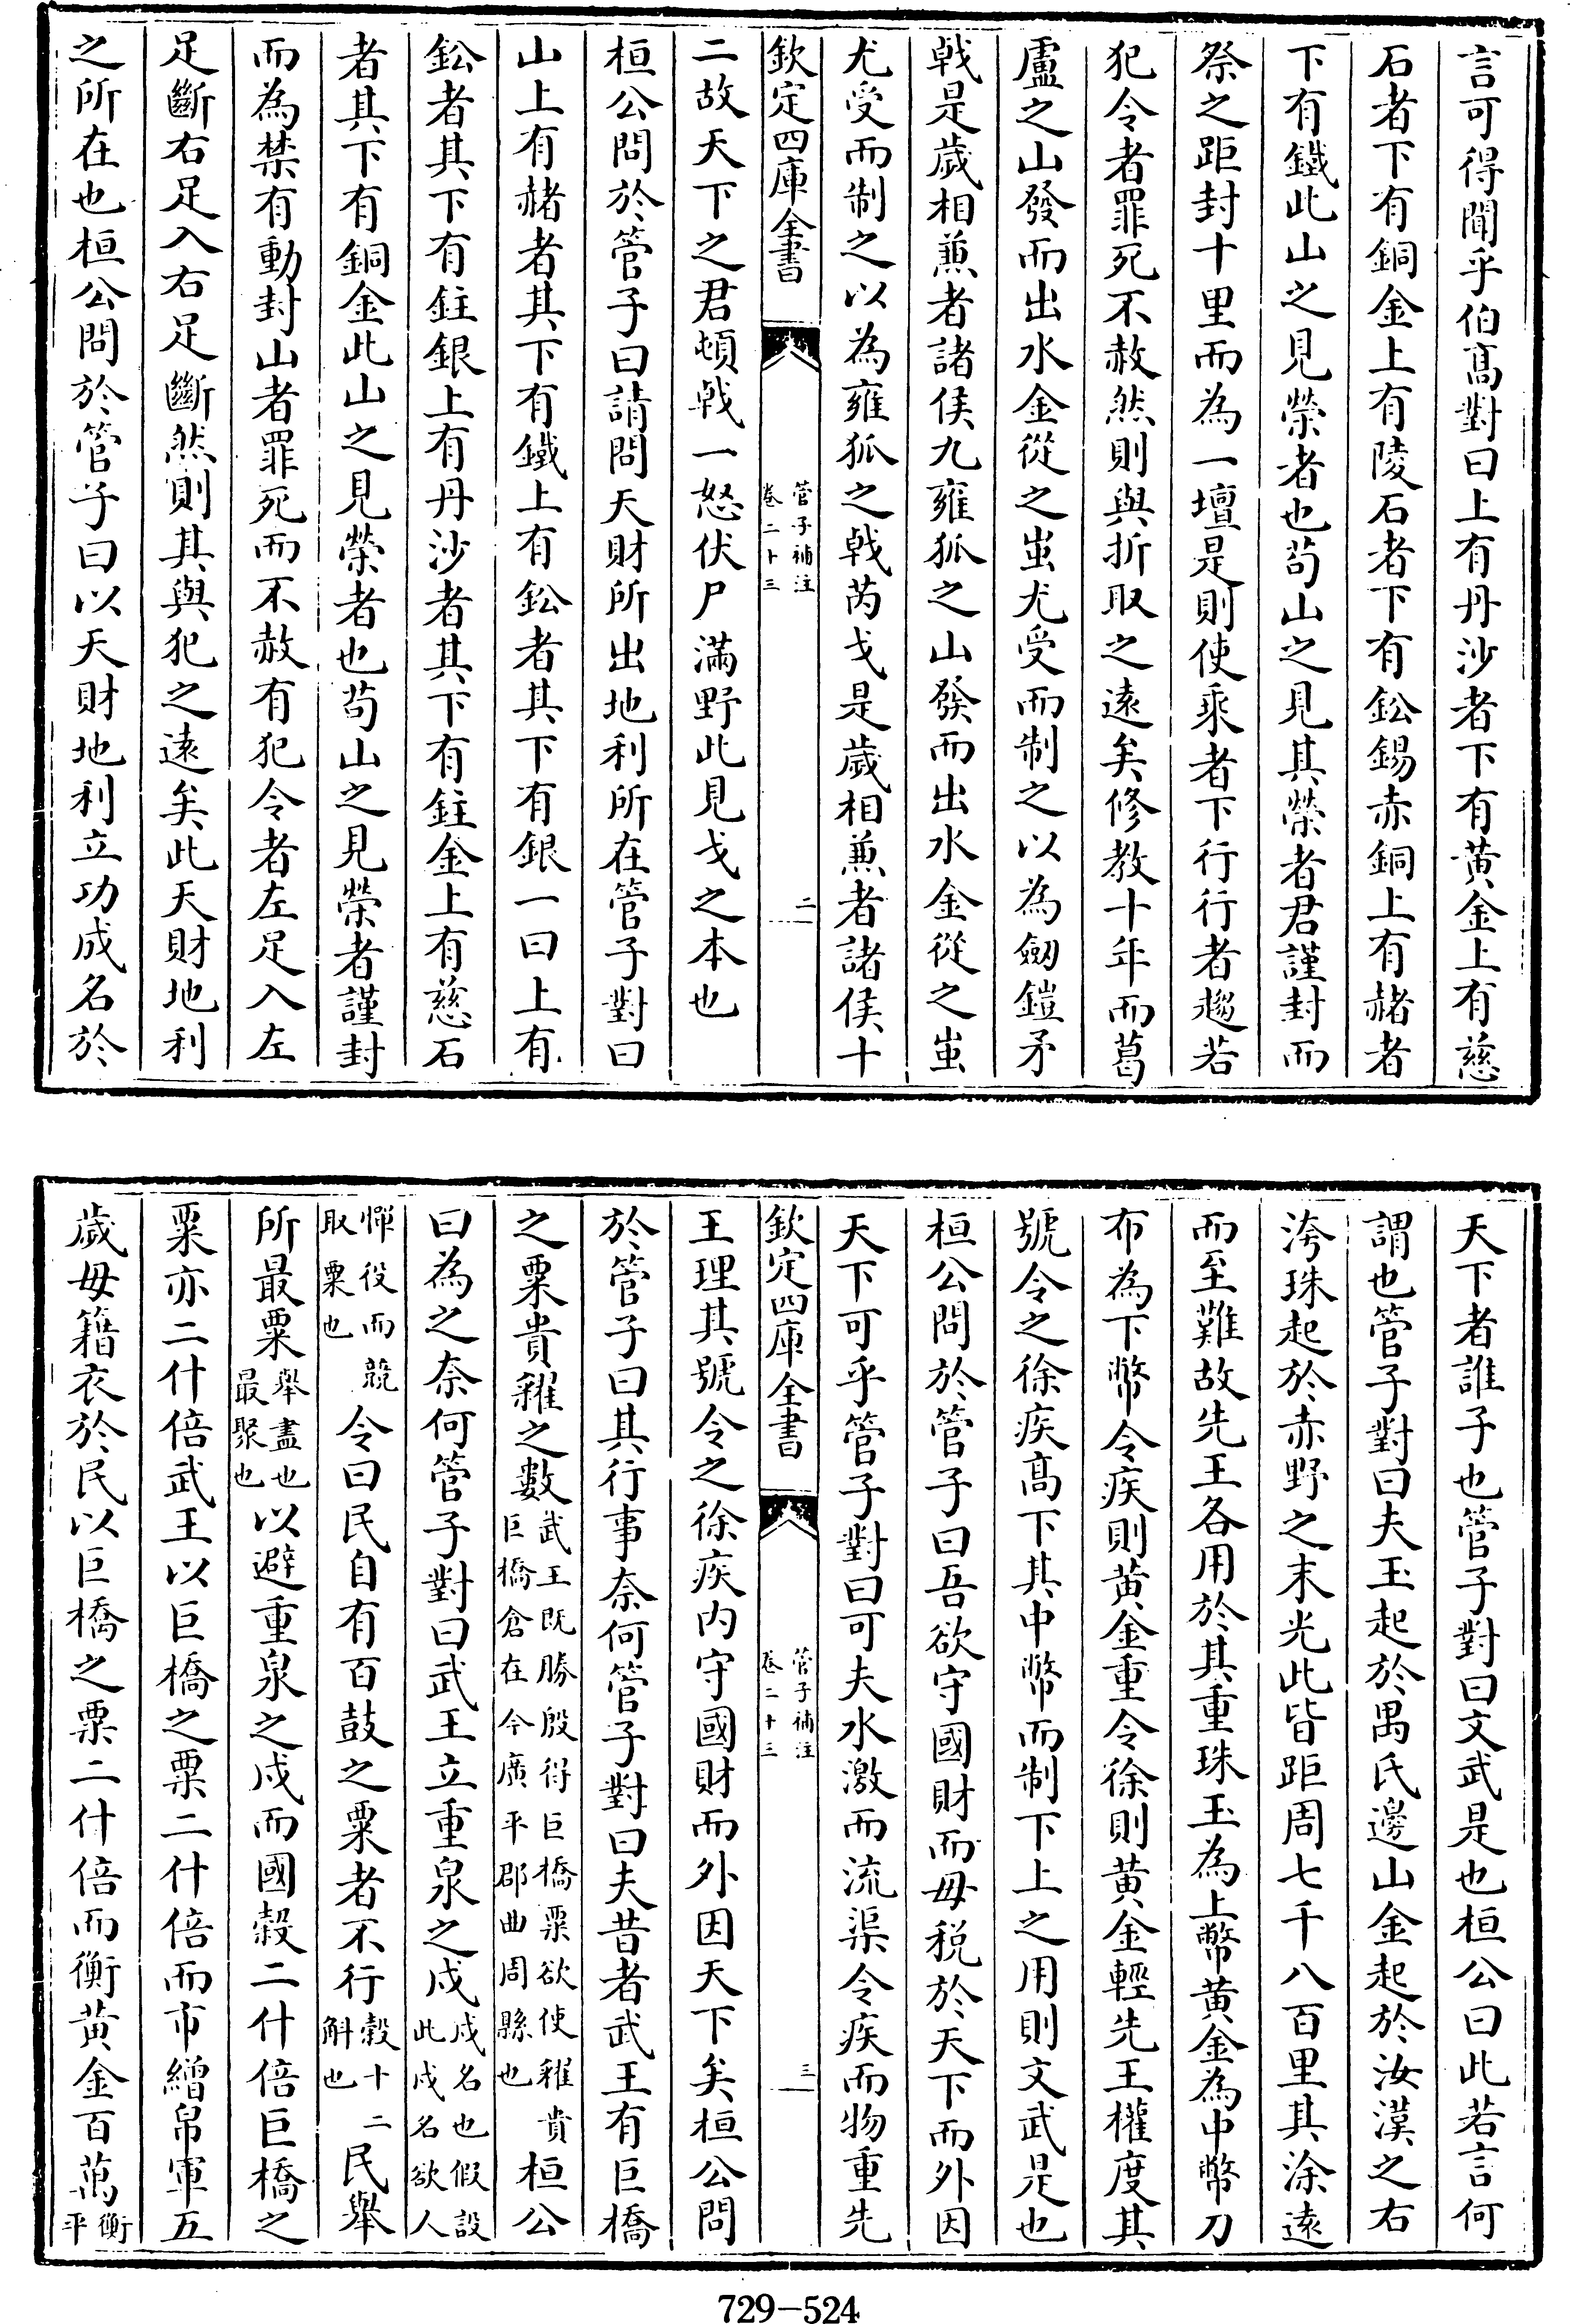 言可得聞乎伯髙對曰上有丹沙者下有黄金上有慈
石者下有銅金上有陵石者下有鈆錫赤銅上有赭者
下有鐵此山之見榮者也茍山之見其榮者君謹封而
祭之距封十里而為一壇是則使乘者下行行者趨若
犯令者罪死不赦然則與折取之逺矣修教十年而葛
盧之山發而出水金從之蚩尤受而制之以為劒鎧矛
戟是歲相兼者諸侯九雍狐之山發而出水金從之蚩
尤受而制之以為雍狐之戟芮戈是歲相兼者諸侯十
欽定四庫全書
管子補注
卷二十三
二
二故天下之君頓戟一怒伏尸滿野此見戈之本也
桓公問於管子曰請問天財所出地利所在管子對曰
山上有赭者其下有鐵上有鈆者其下有銀一曰上有
鈆者其下有鉒銀上有丹沙者其下有鉒金上有慈石
者其下有銅金此山之見榮者也茍山之見榮者謹封
而為禁有動封山者罪死而不赦有犯令者左足入左
足斷右足入右足斷然則其與犯之逺矣此天財地利
之所在也桓公問於管子曰以天財地利立功成名於
天下者誰子也管子對曰文武是也桓公曰此若言何
謂也管子對曰夫玉起於禺氏邊山金起於汝漢之右
洿珠起於赤野之末光此皆距周七千八百里其涂逺
而至難故先王各用於其重珠玉為上幣黄金為中幣刀
布為下幣令疾則黄金重令徐則黄金輕先王權度其
號令之徐疾髙下其中幣而制下上之用則文武是也
桓公問於管子曰吾欲守國財而毋税於天下而外因
天下可乎管子對曰可夫水激而流渠令疾而物重先
欽定四庫全書
管子補注
卷二十三
三
王理其號令之徐疾内守國財而外因天下矣桓公問
於管子曰其行事奈何管子對曰夫昔者武王有巨橋
之粟貴糴之數武王既勝殷得巨橋粟欲使糴貴巨橋倉在今廣平郡曲周縣也桓公
曰為之奈何管子對曰武王立重泉之戍戍名也假設此戍名欲人
憚役而競取粟也令曰民自有百鼓之粟者不行榖十二斛也民舉
所最粟舉盡也最聚也以避重泉之戍而國榖二什倍巨橋之
粟亦二什倍武王以巨橋之粟二什倍而市繒帛軍五
歲毋籍衣於民以巨橋之粟二什倍而衡黄金百萬衡平
729-524